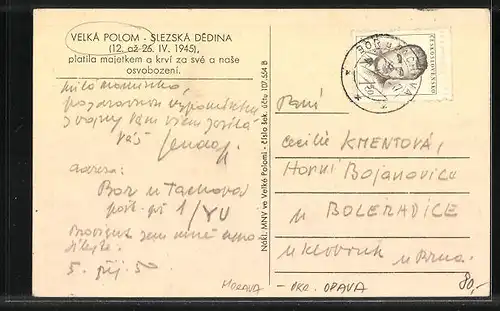 VELKÁ POLOM - SLEZSKÁ DĚDINA
(12. až 26. IV. 1945),
platila majetkem a krví za své a naše
osvobození.
Milá maminko,
pozdravnou vzpomínku
z vojny Vám všem posílá
váš
adresa:
Bor u Tachova
pošt. př. 1/YU
5. říj. 50
Nákl. MNV ve Velké Polomi - číslo šek. účtu 107.554 B
ČESKOSLOVENSKO
Paní
Cecilie KMENTOVÁ,
Horní Bojanovice
u BOLERADICE
u Klobouk u Brna.
MORAVA
- OKR. OPAVA
80,-